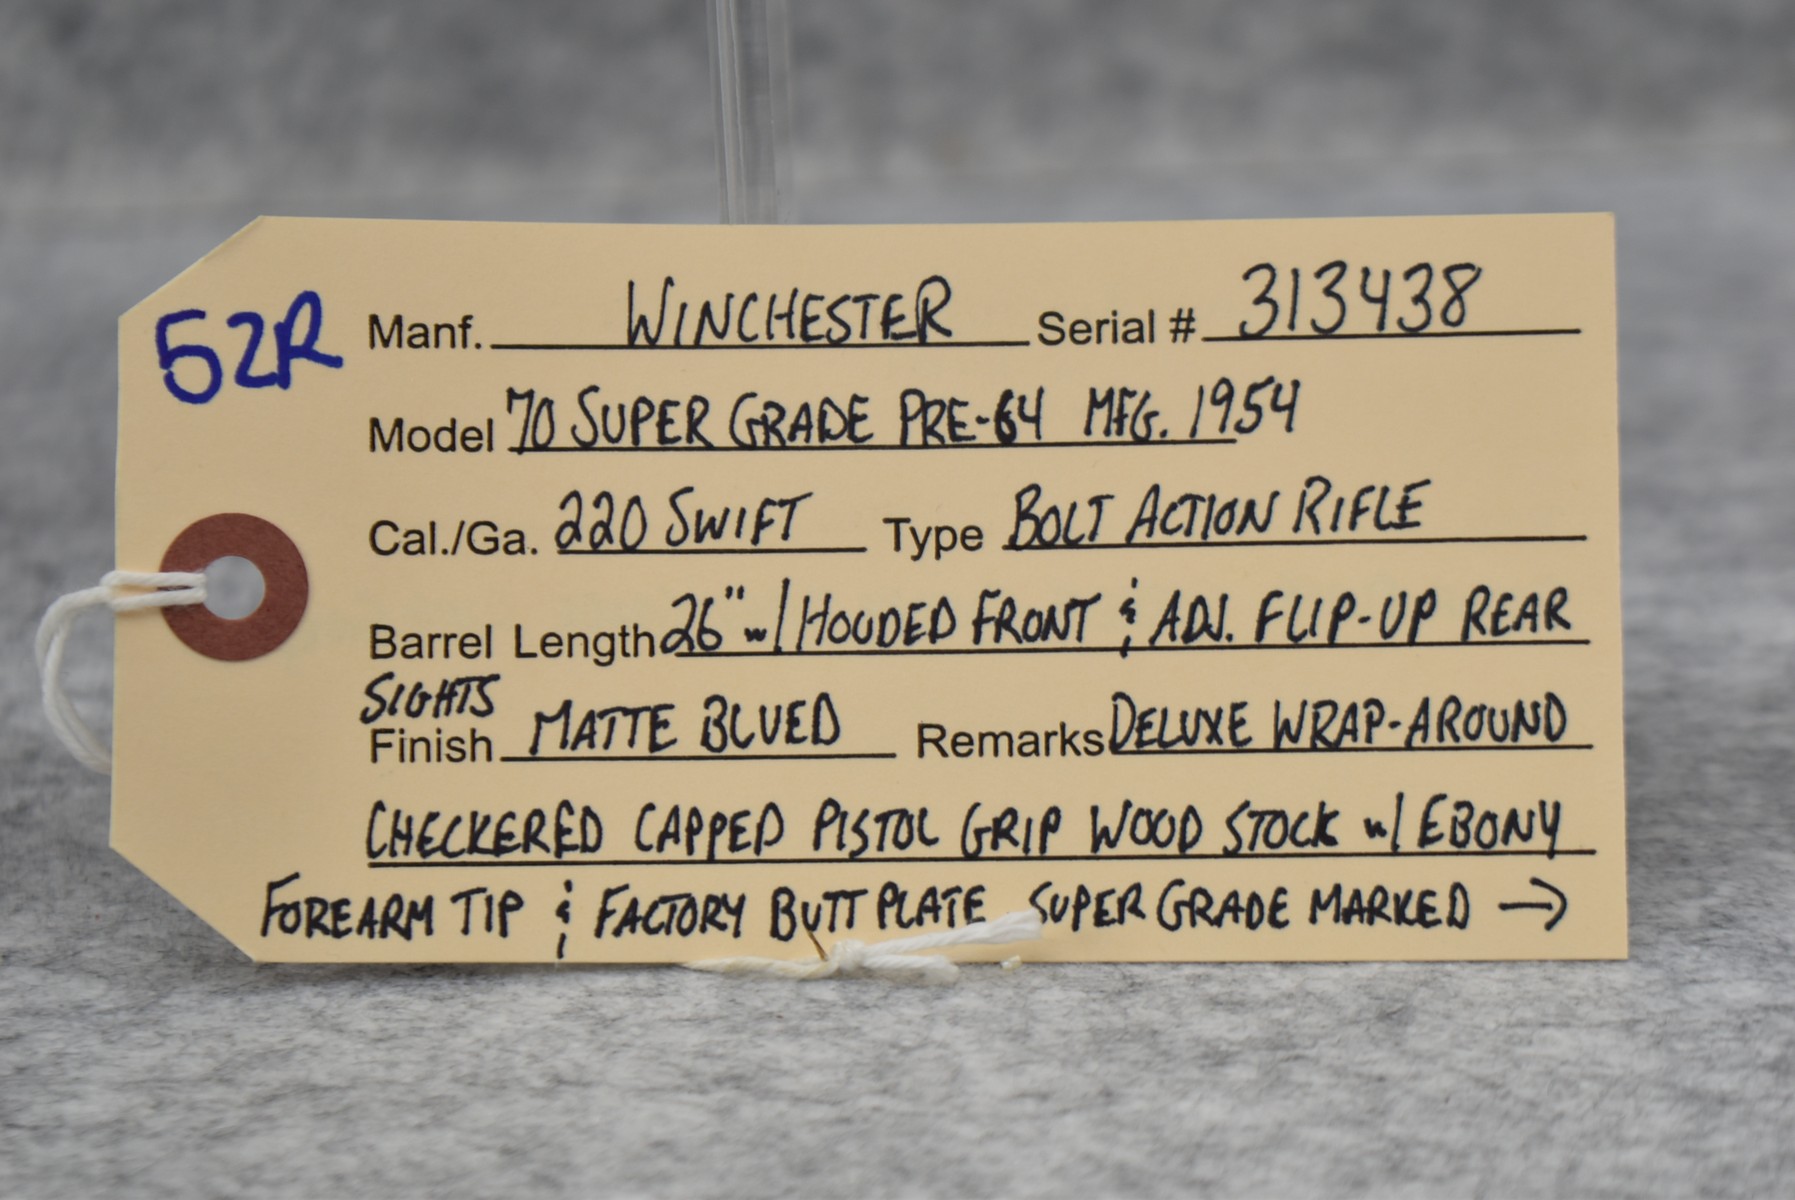 52R
Manf. WINCHESTER Serial # 313438
Model 70 SUPER GRADE PRE-64 MFG. 1954
Cal./Ga. 220 SWIFT Type BOLT ACTION RIFLE
Barrel Length 26" w/ HOODED FRONT & ADJ. FLIP-UP REAR
SIGHTS
Finish MATTE BLUED Remarks DELUXE WRAP-AROUND
CHECKERED CAPPED PISTOL GRIP WOOD STOCK w/ EBONY
FOREARM TIP & FACTORY BUTT PLATE SUPER GRADE MARKED →